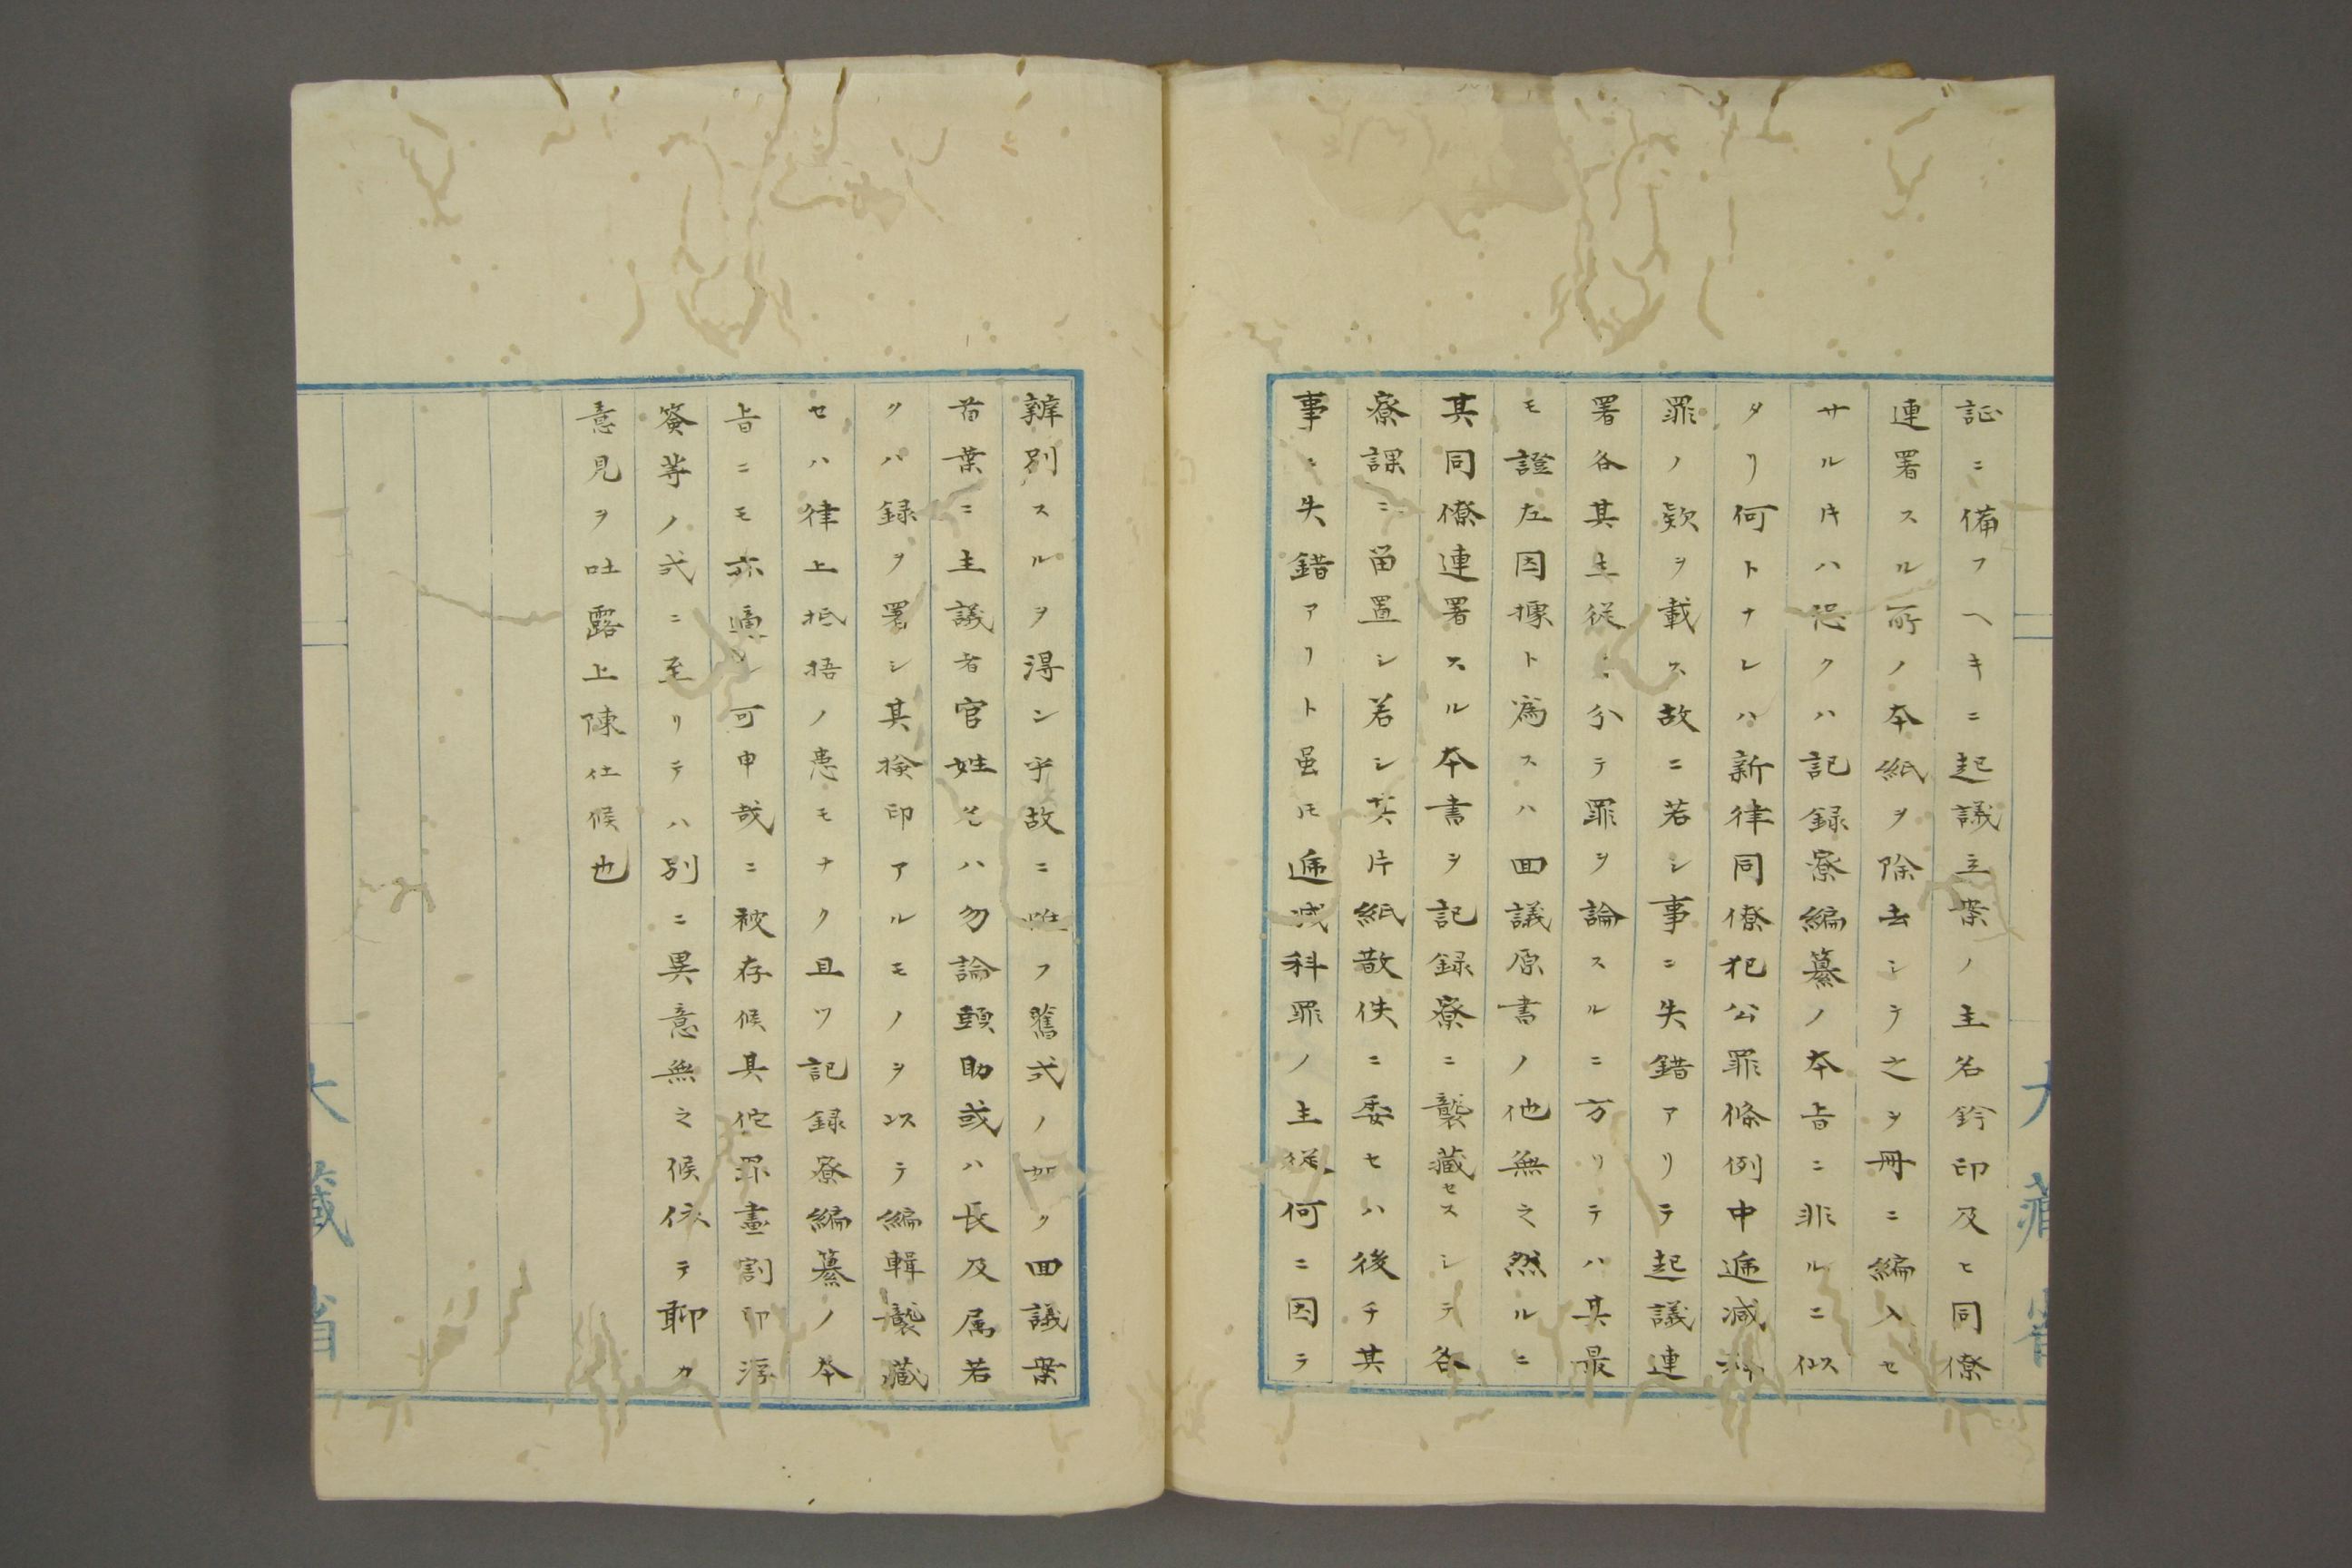 証ニ備フヘキニ起議立案ノ主名鈐印及ヒ同僚
連署スル所ノ本紙ヲ除去シテ之ヲ冊ニ編入セ
サル片ハ恐クハ記録寮編纂ノ本旨ニ非ルニ似
タリ何トナレハ新律同僚犯公罪條例中逓減科
罪ノ欵ヲ載ス故ニ若シ事ニ失錯アリテ起議連
署各其主従ニ分テ罪ヲ論スルニ方リテハ其最
モ證左因據ト為スハ回議原書ノ他無之然ルニ
其同僚連署スル本書ヲ記録寮ニ襲藏セスシテ各
寮課ニ畄置シ若シ其片紙散佚ニ委セハ後チ其
事ニ失錯アリト虽𪜈逓减科罪ノ主従何ニ因テ
辨別スルヲ得ン乎故ニ唯フ舊式ノ如ク回議案
首葉ニ主議者官姓名ハ勿論頭助或ハ長及属若
クハ録ヲ署シ其検印アルモノヲ以テ編輯襲藏
セハ律上抵捂ノ患モナク且ツ記録寮編纂ノ本
旨ニモ亦適シ可申哉ニ被存候其佗罫畫割印浮
簽等ノ式ニ至リテハ別ニ異意無之候依テ聊カ
意見ヲ吐露上陳仕候也
大藏省
大藏省